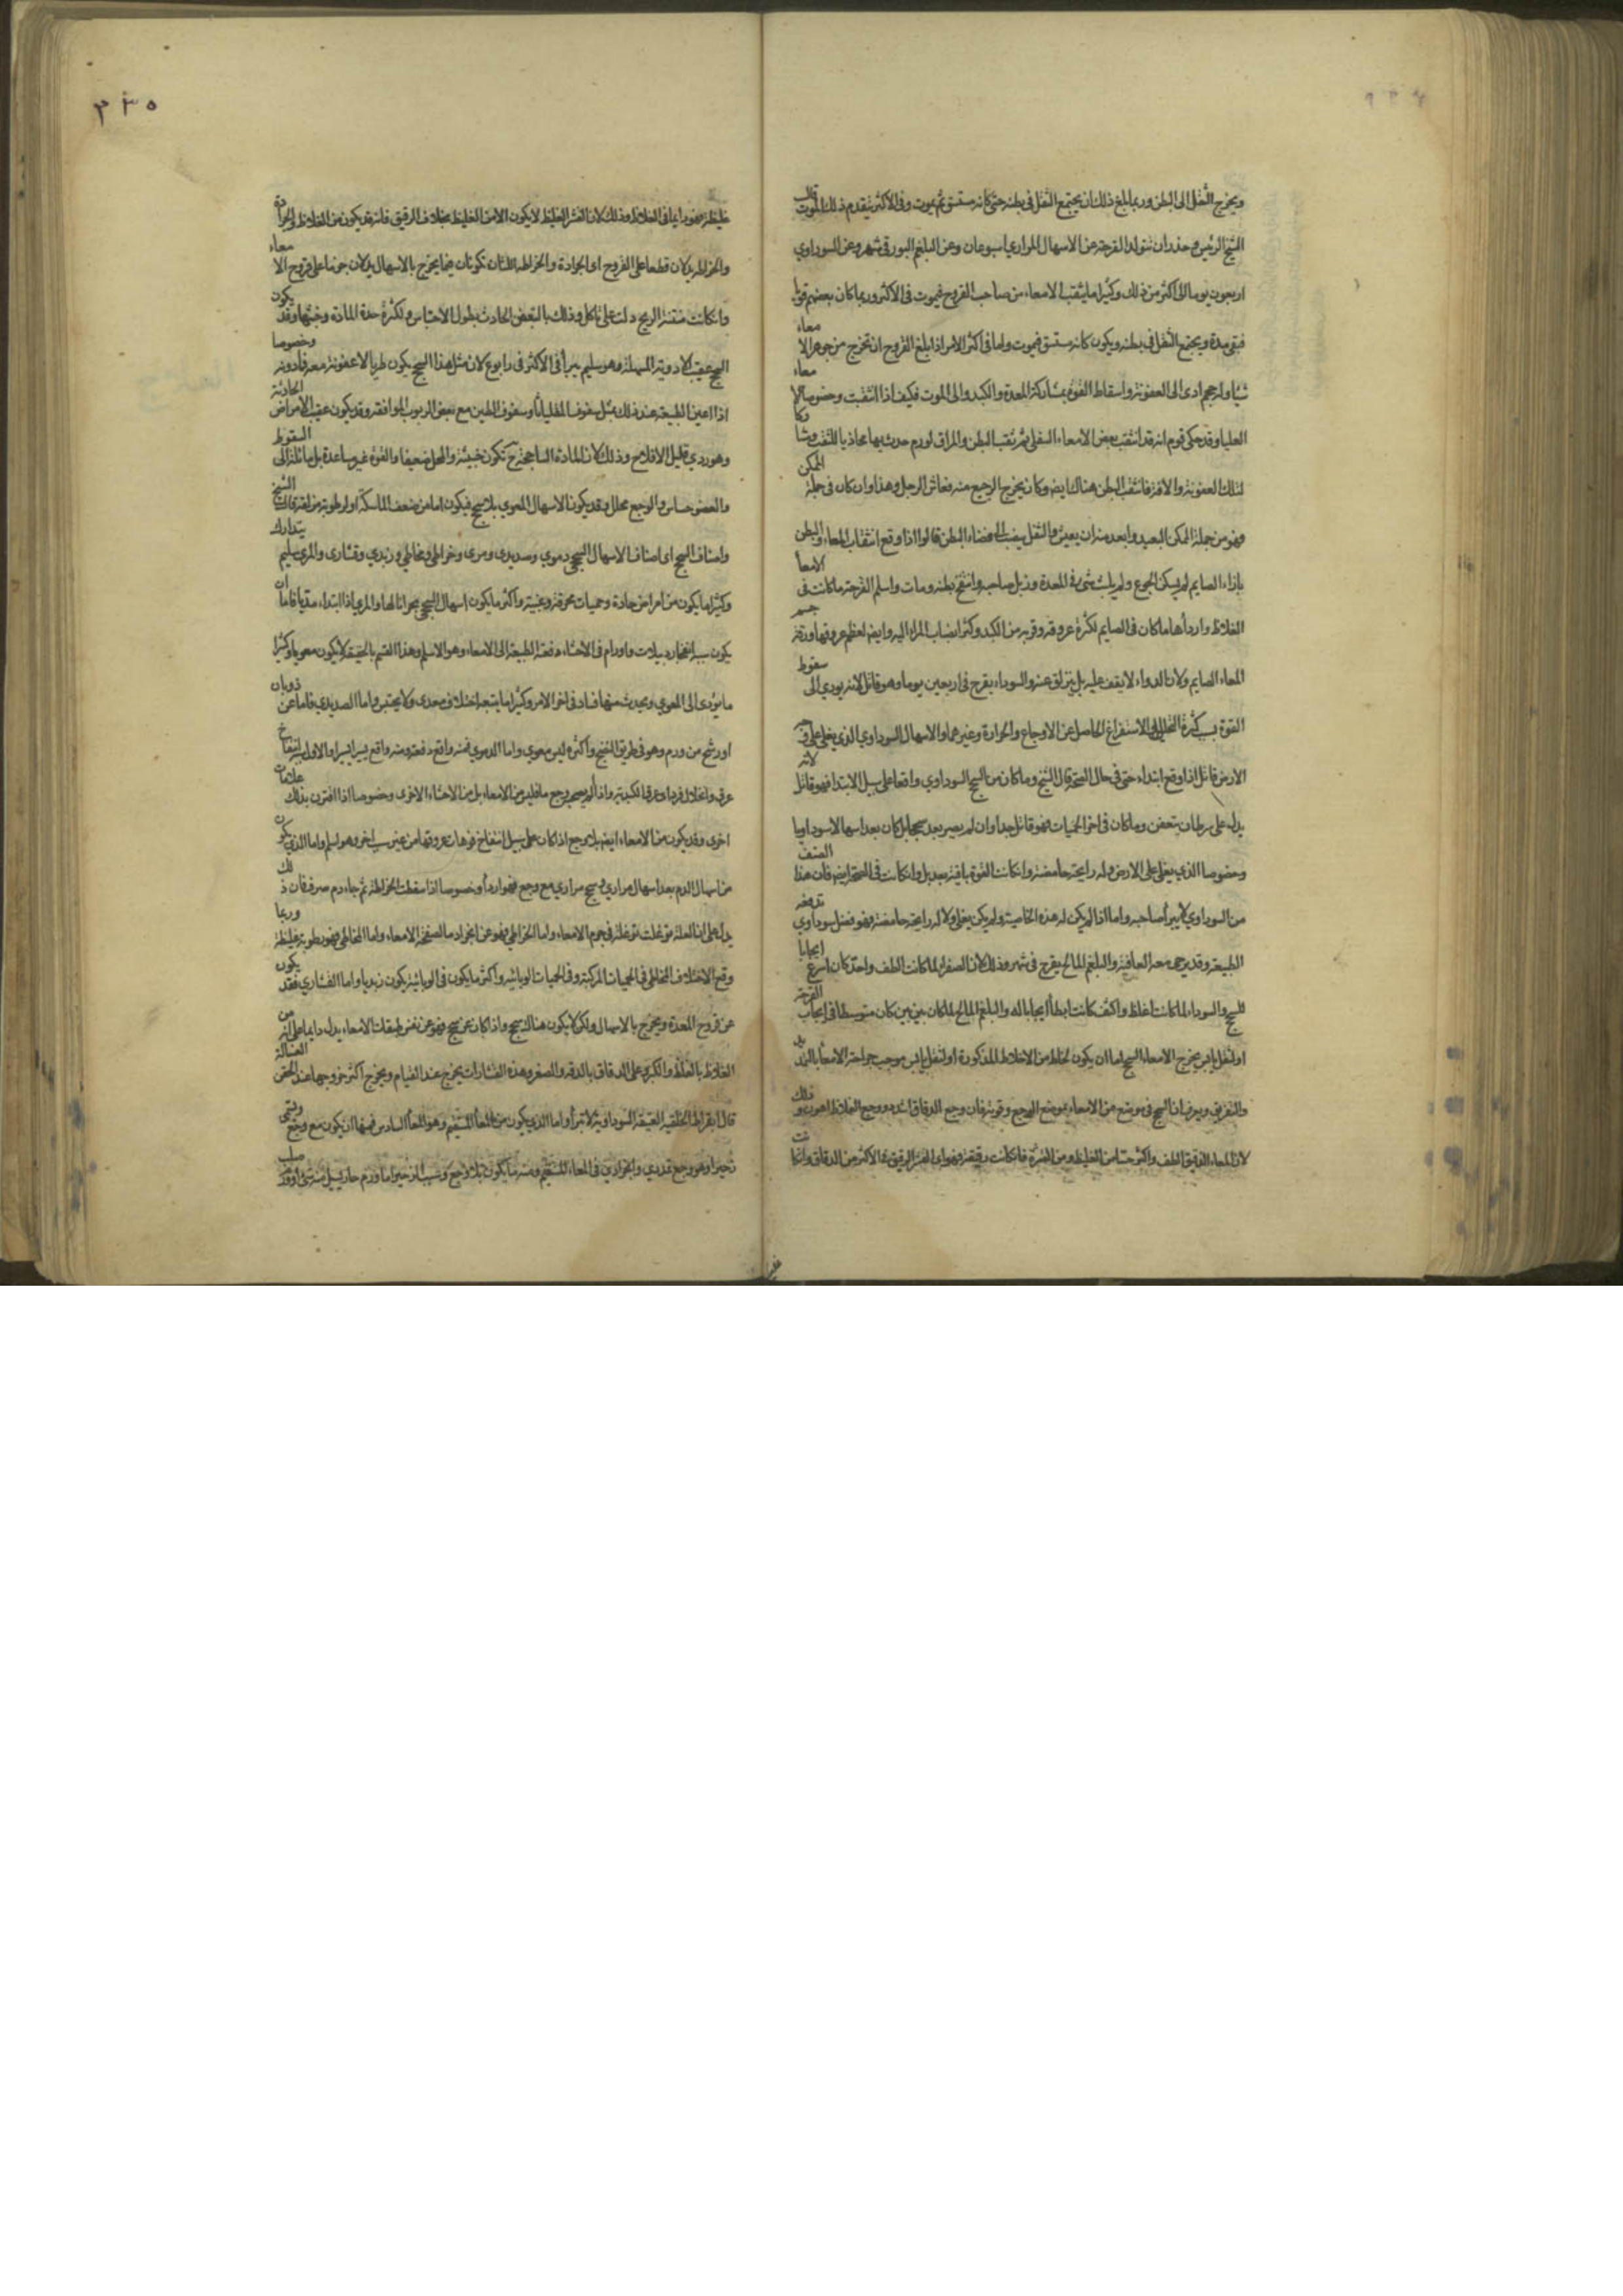 ويخرج الثفل الى البطن وربما بلغ ذلك ان يجتمع الثفل في بطنه حتى كانه مستسق ثم يموت وفي الاكثر يتقدم ذلك الموت قال
الشيخ الرئيس ان تتولد القرحة عن الاسهال المراري اسبوعان وعن البلغم البورقي شهر وعن السوداوي
اربعون يوما الى اكثر من ذلك وكثيرا ما يثقب الامعاء من صاحب القروح فيموت في الاكثر وربما كان بعضهم قويا
فبقى مدة ويجتمع الثفل في بطنه ويكون كانه مستسق فيموت واما في اكثر الامر اذا بلغ القروح ان تخرج من جوهر الامعاء
شيئا وله حجم ادى الى العفونة واسقاط القوة بمشاركة المعدة والكبد والى الموت فكيف اذا انثقبت وخصوصا الامعاء
العليا وقد حكى قوم انه قد انثقب بعض الامعاء السفلى ثم ثقب البطن والمراق لورم حدث بها محاذيا للثقب
لتلك العفونة والافة فانثقب البطن هناك ايضا وكان يخرج الرجيع منه فعاش الرجل وهذا وان كان في جملة الممكن
فهو من جملة الممكن البعيد وابعد منه ان يعيش والثفل ينصب الى فضاء البطن قالوا اذا وقع انثقاب المعاء والبطن
بازاء الصايم لم يسكن الجوع ولم يلبث شئ في المعدة وذبل صاحبه وانتفخ بطنه ومات واسلم القرحة ما كانت في الامعاء
الغلاظ واردأها ما كان في الصايم لكثرة عروقه وقربه من الكبد وكثرة انصباب المرار اليه وايضا لعظم عروقها ورقة جسم
المعاء الصايم ولان الدواء لا يقف عليه بل ينزلق عنه والسوداء يقرح في اربعين يوما وهو قاتل لانه يودي الى سقوط
القوة بسبب كثرة التحليل الاستفراغ الحاصل عن الاوجاع والحرارة وغيرهما والاسهال السوداوي الذي يغلي على وجه
الارض قاتل اذا وقع ابتداء حتى في حال الصحة قال الشيخ وما كان من السحج السوداوي واقعا على سبيل الابتدا فهو قاتل لانه
يدل على سرطان يتعفن وما كان في اخر الحميات فهو قاتل جدا وان لم يصر بعد سحجا بل كان بعد اسهالا سوداويا
وخصوصا الذي يغلي على الارض وله رايحة حامضة وان كانت القوة باقية بعد بل وان كانت في الصحة ايضا فان هذا الصنف
من السوداوي لا يبرأ صاحبه واما اذا لم يكن له هذه الخاصية ولم يكن يغلي ولا له رايحة حامضة فهو فضل سوداوي تدفعه
الطبيعة وقد يرجى معه العافية والبلغم المالح يقرح في شهر وذلك لان الصفراء لما كانت الطف واحد كان اسرع ايجابا
للسحج والسوداء لما كانت اغلظ واكثف كانت ابطأ ايجابا له والبلغم المالح لما كان بين بين كان متوسطا في ايجاب القرحة
او لثفل يابس يخرج الامعاء السحج اما ان يكون لخلط من الاخلاط المذكورة او لثفل يابس موجب جراحة الامعاء
والتفريق ويعرف ان السحج في موضع من الامعاء بموضع الوجع وقوته فان وجع الدقاق اشد ووجع الغلاظ اهون وذلك
لان المعاء الدقيق الطف واكثر حسا من الغليظ ومن القشرة فان كانت رقيقة فهو اي القشر الرقيق في الاكثر من الدقاق وان كانت
٣٣٥
غليظة فهو دايما في الغلاظ وذلك لان القشر الغليظ لا يكون الا من الغليظ بخلاف الرقيق فانه قد يكون من الغلاظ والجرادة
والخراطة يدلان قطعا على القروح اي الجرادة والخراطة اللتان تكونان فيما يخرج بالاسهال يدلان جزما على قروح الامعاء
وان كانت منتنة الريح دلت على تاكل وذلك بالتعفن الحادث بطول الاحتباس ولكثرة حدة المادة وخبثها وقد يكون
السحج عقيب الادوية المسهلة وهو سليم يبرأ في الاكثر في رابوع لان مثل هذا السحج يكون طريا لا عفونة معه وخصوصا
اذا اعين الطبيعة عند ذلك بمثل سفوف المقلياثا وسفوف الطين مع بعض الربوب الموافقة وقد يكون عقيب الامراض الحادثة
وهو ردي قليل الافلاح وذلك لان المادة الساحجة ح تكون خبيثة والمحل ضعيفا والقوة غير مساعدة بل مائلة الى السقوط
والعضو حساس والوجع محلل وقد يكون الاسهال المعوي بلا سحج فيكون اما من ضعف الماسكة او لرطوبة مزلقة قال الشيخ
واصناف السحج اي اصناف الاسهال السحجي دموي وصديدي ومري وخراطي ومخاطي وزبدي وقشاري والمري سليم يتدارك
وكثيرا ما يكون من امراض حادة وحميات محرقة وغبية واكثر ما يكون اسهال السحجي بحرانا لها والمري اذا ابتداء
يكون سببه انفجار دبيلات واورام في الاحشاء دفعة الطبيعة الى الامعاء وهو الاسلم وهذا القسم بالحقيقة لا يكون معويا وكثيرا
ما يؤدي الى المعوي ويحدث منها فساد في اخر الامر وكثيرا ما يتبعه اختلاف صديدي ولا يحتبس واما الصديدي فاما عن ذوبان
او رشح من ورم وهو في طريق النضج واكثره ليس بمعوي واما الدموي فمنه واقع دفعة ومنه واقع يسيرا يسيرا والاول انفتاح
عرق وانحلال فرد وعرقا لكبدية واذا لم يصحبه وجع ما فليس من الامعاء بل من الاحشاء الاخرى وخصوصا اذا اقترن بذلك علامات
اخرى وقد يكون من الامعاء ايضا بلا وجع اذا كان على سبيل انتفاخ فوهات عروقها من غير سبب اخر وهو اسلم واما الذي يكون
من اسهال الدم بعد اسهال مراري وسحج مراري مع وجع فهو اردأ وخصوصا اذا سقطت الخراطة ثم جاء دم صرف فان ذلك
يدل على ان العلة توغلت توغلة في جرم الامعاء واما الخراطي فهو عن انجراد ما لصفحة الامعاء واما المخاطي فهو رطوبة غليظة وربما
وقع الاختلاف المخاطي في الحميات المركبة وفي الحميات الوبائية واكثر ما يكون في الوبائية يكون زبديا واما القشاري فقد يكون
عن قروح المعدة ويخرج بالاسهال ولكن لا يكون هناك سحج واذا كان عن سحج فهو عن نفس طبقات الامعاء يدل دايما على انه من
الغلاظ بالغلظ والكبر وعلى الدقاق بالدقة والصغر وهذه القشارات يخرج عند القيام ويخرج اكثر خروجها عند الحقن الغسالة
قال بقراط الخلفية العتيقة السوداوية لا تبرأ واما الذي يكون من المعا المستقيم وهو المعا السادس فمنها ان يكون مع وجع ويسمى
زحيرا وهو وجع تمددي وانجرادي في المعاء المستقيم ومنه ما يكون بلا وجع وسبب الزحير اما ورم حار يسيل منه شئ او ورم صلب